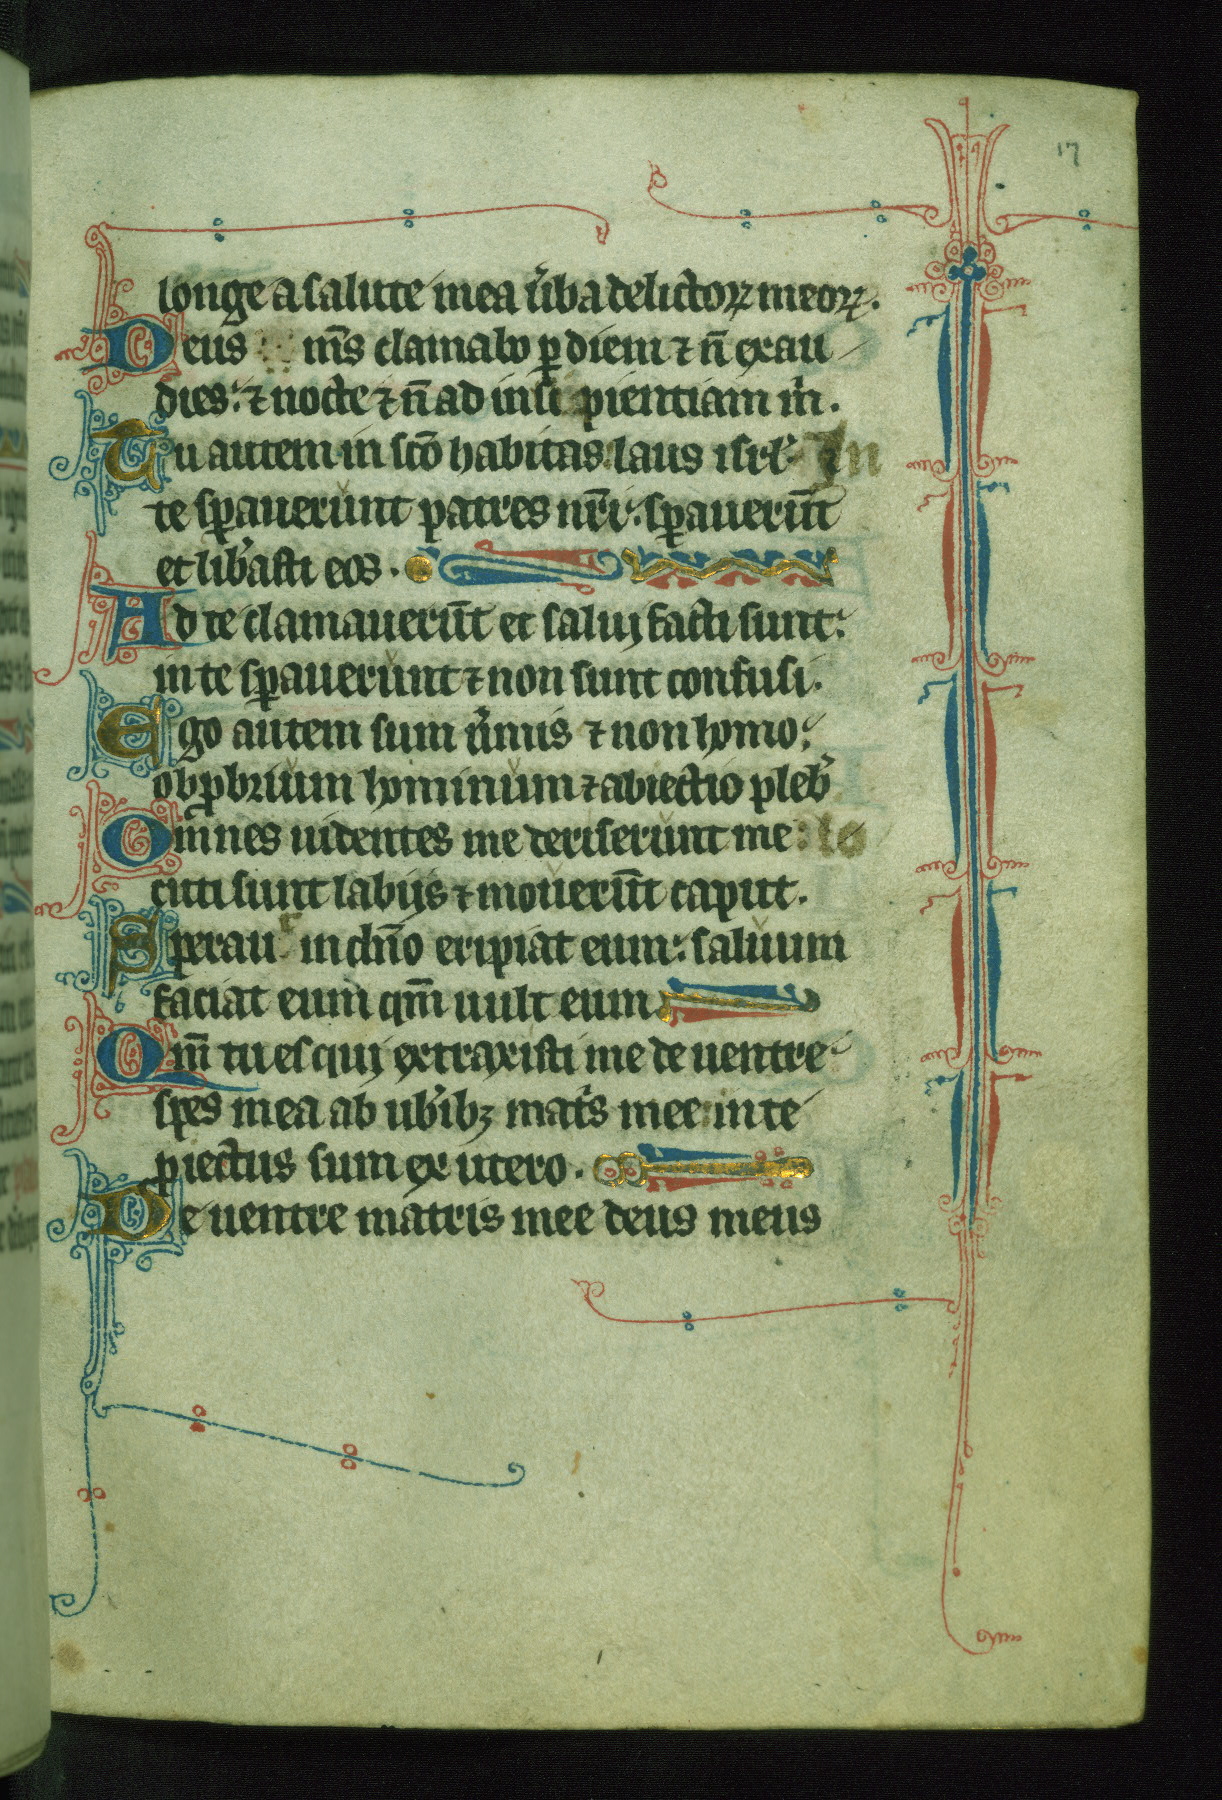 17
longe a salute mea u̾ba delictoꝝ meoꝝ.
Deus m̄s clamabo ꝑ diem ⁊ n̄ exau
dies: ⁊ nocte ⁊ n̄ ad insi pientiam m̍.
Tu autem in sc̄o habitas laus isrl̾ In
te sꝑauerunt patres nr̄i: sꝑauerūt
et lib̾asti eos.
Ad te clamauerūt et salui facti sunt:
in te sꝑauerunt ⁊ non sunt confusi.
Ego autem sum u̾mis ⁊ non homo:
obꝓbrium hominum ⁊ abiectio pleb̾
Omnes uidentes me deriserunt me: lo
cuti sunt labijs ⁊ mouerūt caput.
Sperau in dn̄o eripiat eum: saluum
faciat eum qm̄ uult eum
Qm̄ tu es qui extraxisti me de uentre
spes mea ab ub̾ibꝫ mat̾s mee in te
ꝓiectus sum ex utero.
De uentre matris mee deus meus